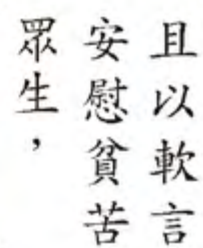 且以軟言
安慰貧苦
眾生，